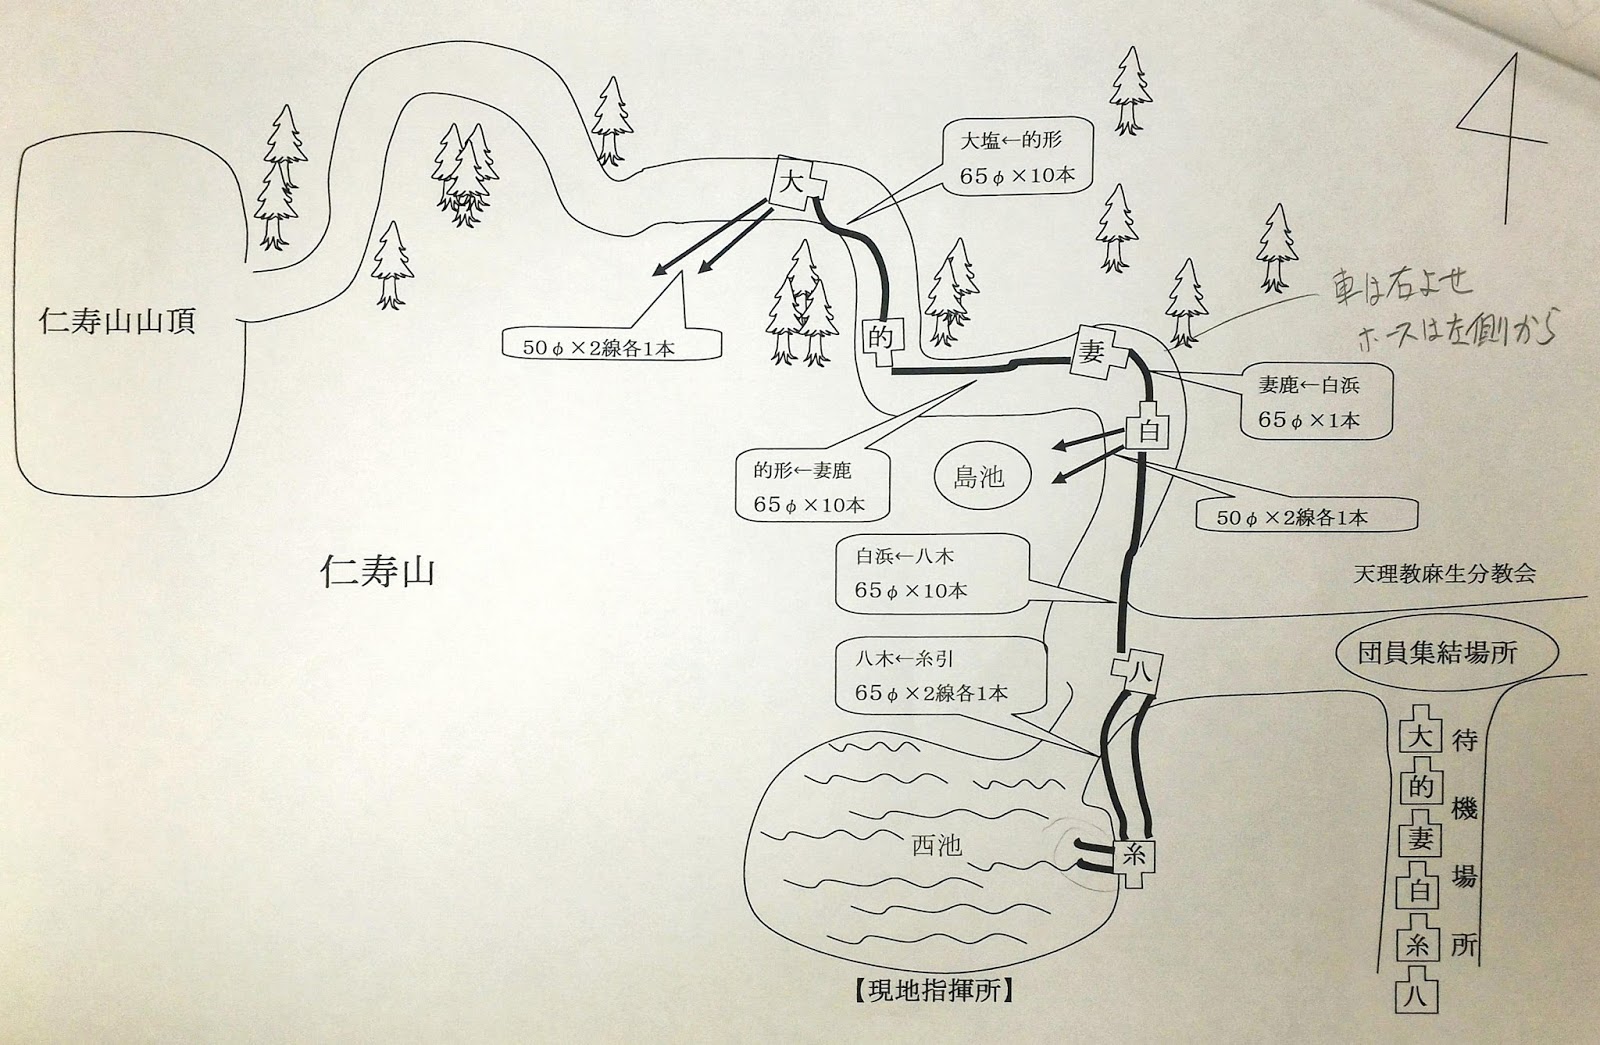 大塩←的形
65φ×10本
大
仁寿山山頂
50φ×2線各1本
的
妻
車は右よせ
ホースは左側から
妻鹿←白浜
65φ×1本
白
的形←妻鹿
65φ×10本
島池
50φ×2線各1本
白浜←八木
65φ×10本
仁寿山
天理教麻生分教会
八木←糸引
65φ×2線各1本
八
団員集結場所
西池
糸
【現地指揮所】
待機場所
大
的
妻
白
糸
八